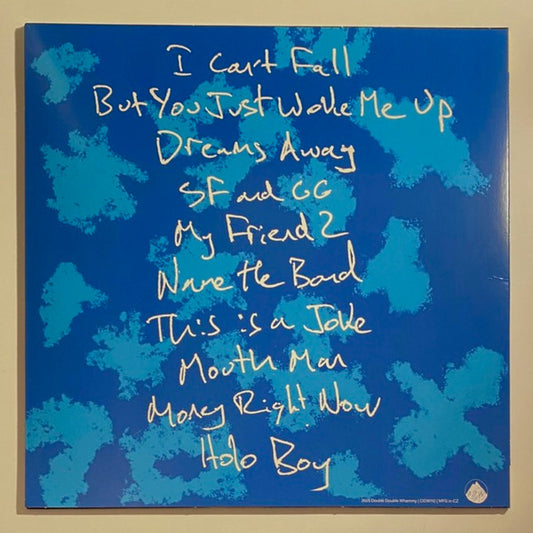 I Can't Fall
But You Just Woke Me Up
Dreams Away
SF and GG
My Friend 2
Name the Band
This is a Joke
Mouth Man
Money Right Now
Holo Boy
2025 Double Double Whammy | | MFG in CZ